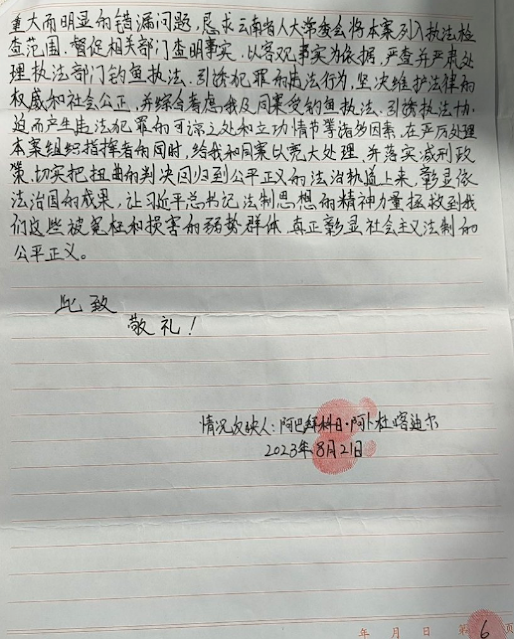 重大而明显的错漏问题，恳求云南省人大常委会将本案列入执法检
查范围，督促相关部门查明事实，以客观事实为依据，严查并严肃处
理执法部门钓鱼执法、引诱犯罪的违法行为，坚决维护法律的
权威和社会公正，并综合考虑我及同案受钓鱼执法、引诱执法胁
迫而产生违法犯罪的可谅之处和立功情节等诸多因素，在严厉处理
本案组织指挥者的同时，给我和同案以宽大处理，并落实减刑政
策，切实把扭曲的判决回归到公平正义的法治轨道上来，彰显依
法治国的成果，让习近平总书记法制思想的精神力量拯救到我
们这些被冤枉和损害的弱势群体，真正彰显社会主义法制的
公平正义。
此致
敬礼！
情况反映人：阿巴拜科日·阿卜杜喀迪尔
2023年8月21日
年 月 日 第 6 页